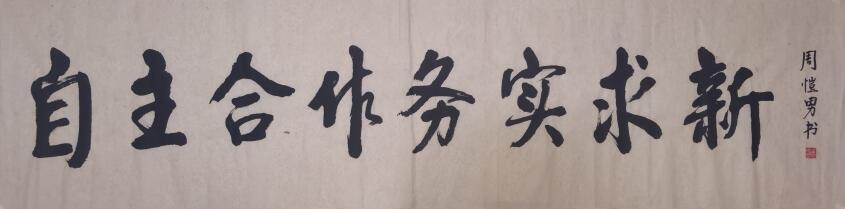 自主合作务实求新
周恺男书